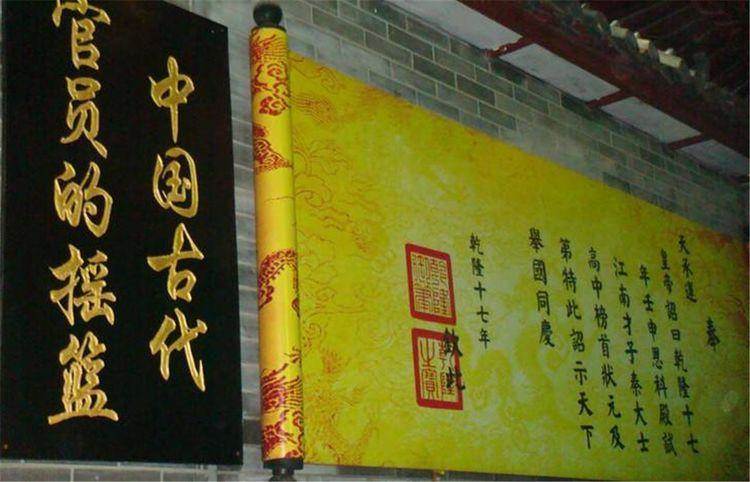 中国古代
官员的摇篮
奉
天承運
皇帝詔曰乾隆十七
年壬申思科殿試
江南才子秦大士
高中榜首狀元及
第特此詔示天下
舉國同慶
欽此
乾隆十七年